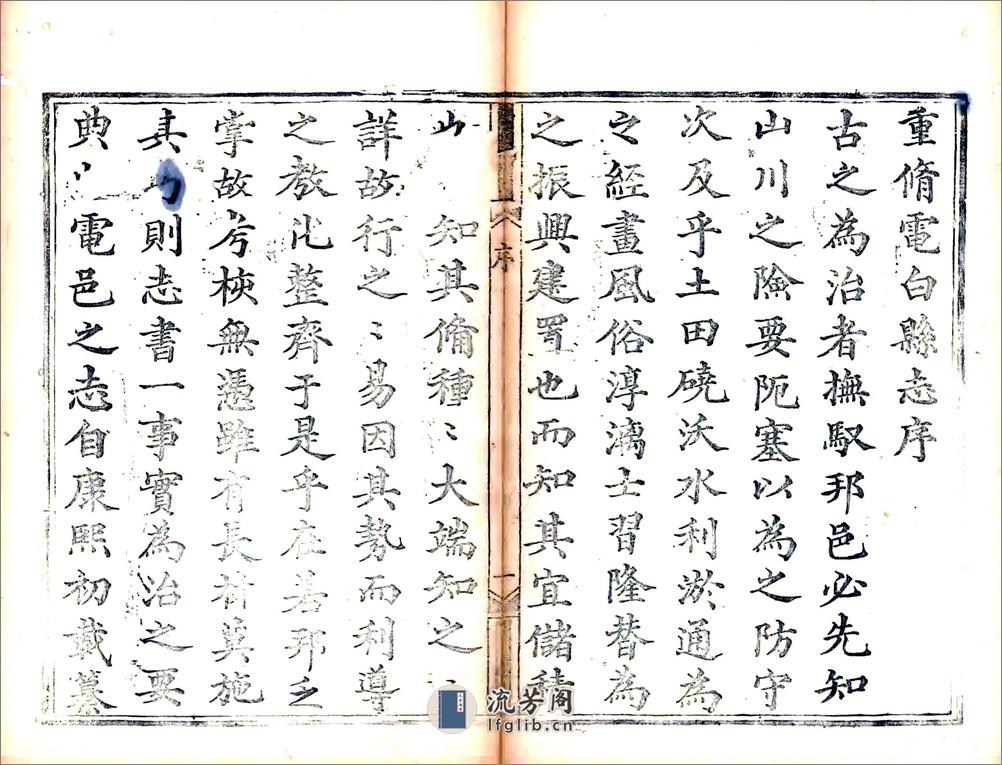 重脩電白縣志序
古之為治者撫馭邦邑必先知
山川之險要阨塞以為之防守
次及乎土田磽沃水利淤通為
之經畫風俗淳漓士習隆替為
之振興建置也而知其宜儲積
序
一
山 知其備種〻大端知之〻
詳故行之〻易因其勢而利導
之教化整齊于是乎在若邦乏
掌故考校無憑雖有長材莫施
其 則志書一事實為治之要
典 電邑之志自康熙初載纂
流芳阁
lfglib.cn